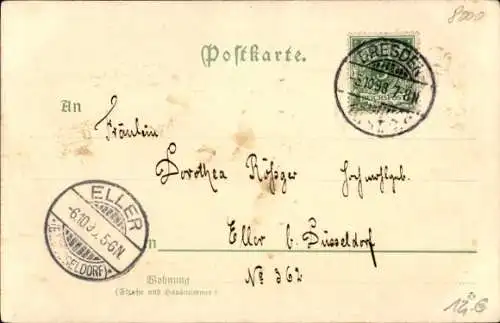 8000
Postkarte.
DRESDEN
5.10.98. 7-8N.
REICHSPOST
An
Fräulein
Dorothea Rößger Hochwohlgeb.
ELLER
-6.10.9 5-6N.
(B. DÜSSELDORF)
in
Eller b. Düsseldorf
Wohnung
(Straße und Hausnummer)
No 362